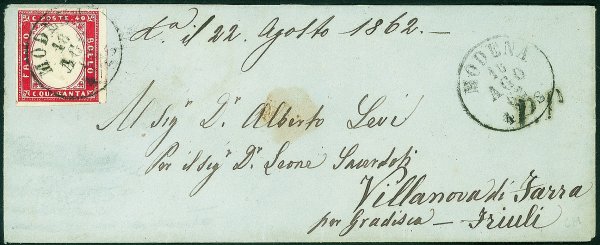 C. POSTE 40
FRANCO
BOLLO
C. QUARANTA
MODENA
AGO
il 22. Agosto 1862.
MODENA
AGO
62
P.D.
Al Sig.r D.r Alberto Levi
Per il sig.r D.r Leone Sacerdoti
Villanova di Farra
per Gradisca — Friuli